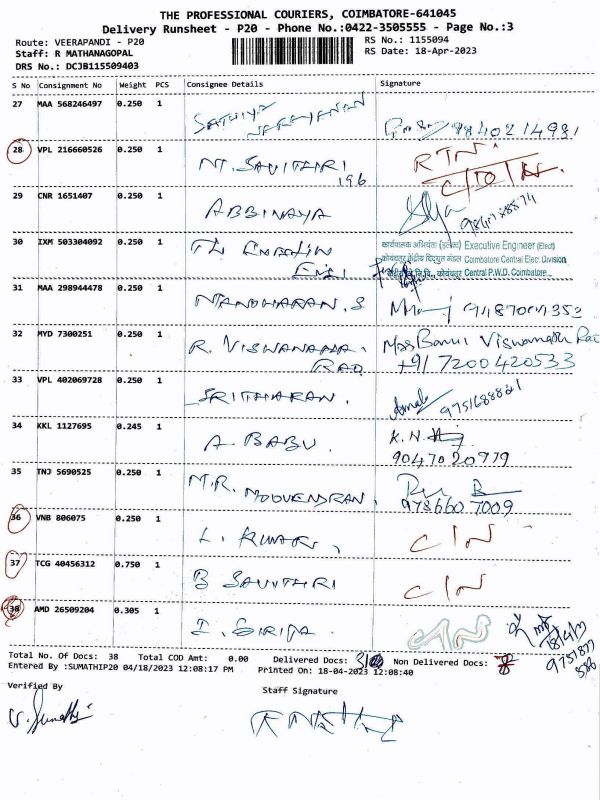 THE PROFESSIONAL COURIERS, COIMBATORE-641045
Delivery Runsheet - P20 - Phone No.:0422-3505555 - Page No.:3
Route: VEERAPANDI - P20
RS No.: 1155094
Staff: R MATHANAGOPAL
RS Date: 18-Apr-2023
DRS No.: DCJB115509403
S No Consignment No Weight PCS Consignee Details Signature
27 MAA 568246497 0.250 1 SATHIYA
NARAYANAN
28 VPL 216660526 0.250 1 RTN.
M. SAVITHRI
196
29 CNR 1651407 0.250 1
ABBINAYA
30 IXM 503304092 0.250 1 कार्यपालक अभियंता Executive Engineer (Elect)
Coimbatore Central Elec. Division
Central P.W.D. Coimbatore
31 MAA 298944478 0.250 1
MANOHARAN. S
32 MYD 7300251 0.250 1
R. VISWANATHA
RAO +91 7200420533
33 VPL 402069728 0.250 1
SRITHARAN. 9751688821
34 KKL 1127695 0.245 1 K.N.
A. BABU. 9047020979
35 TNJ 5690525 0.250 1
M.R.
MOOVENDRAN. 9786607009
36 VNB 806075 0.250 1
L. KUMAR, C/N
37 TCG 40456312 0.750 1
B SAVITHRI C/N
38 AMD 26509204 0.305 1
C/N
Total No. Of Docs: 38 Total COD Amt: 0.00 Delivered Docs: Non Delivered Docs:
Entered By :SUMATHIP20 04/18/2023 12:08:17 PM Printed On: 18-04-2023 12:08:40
Verified By
Staff Signature